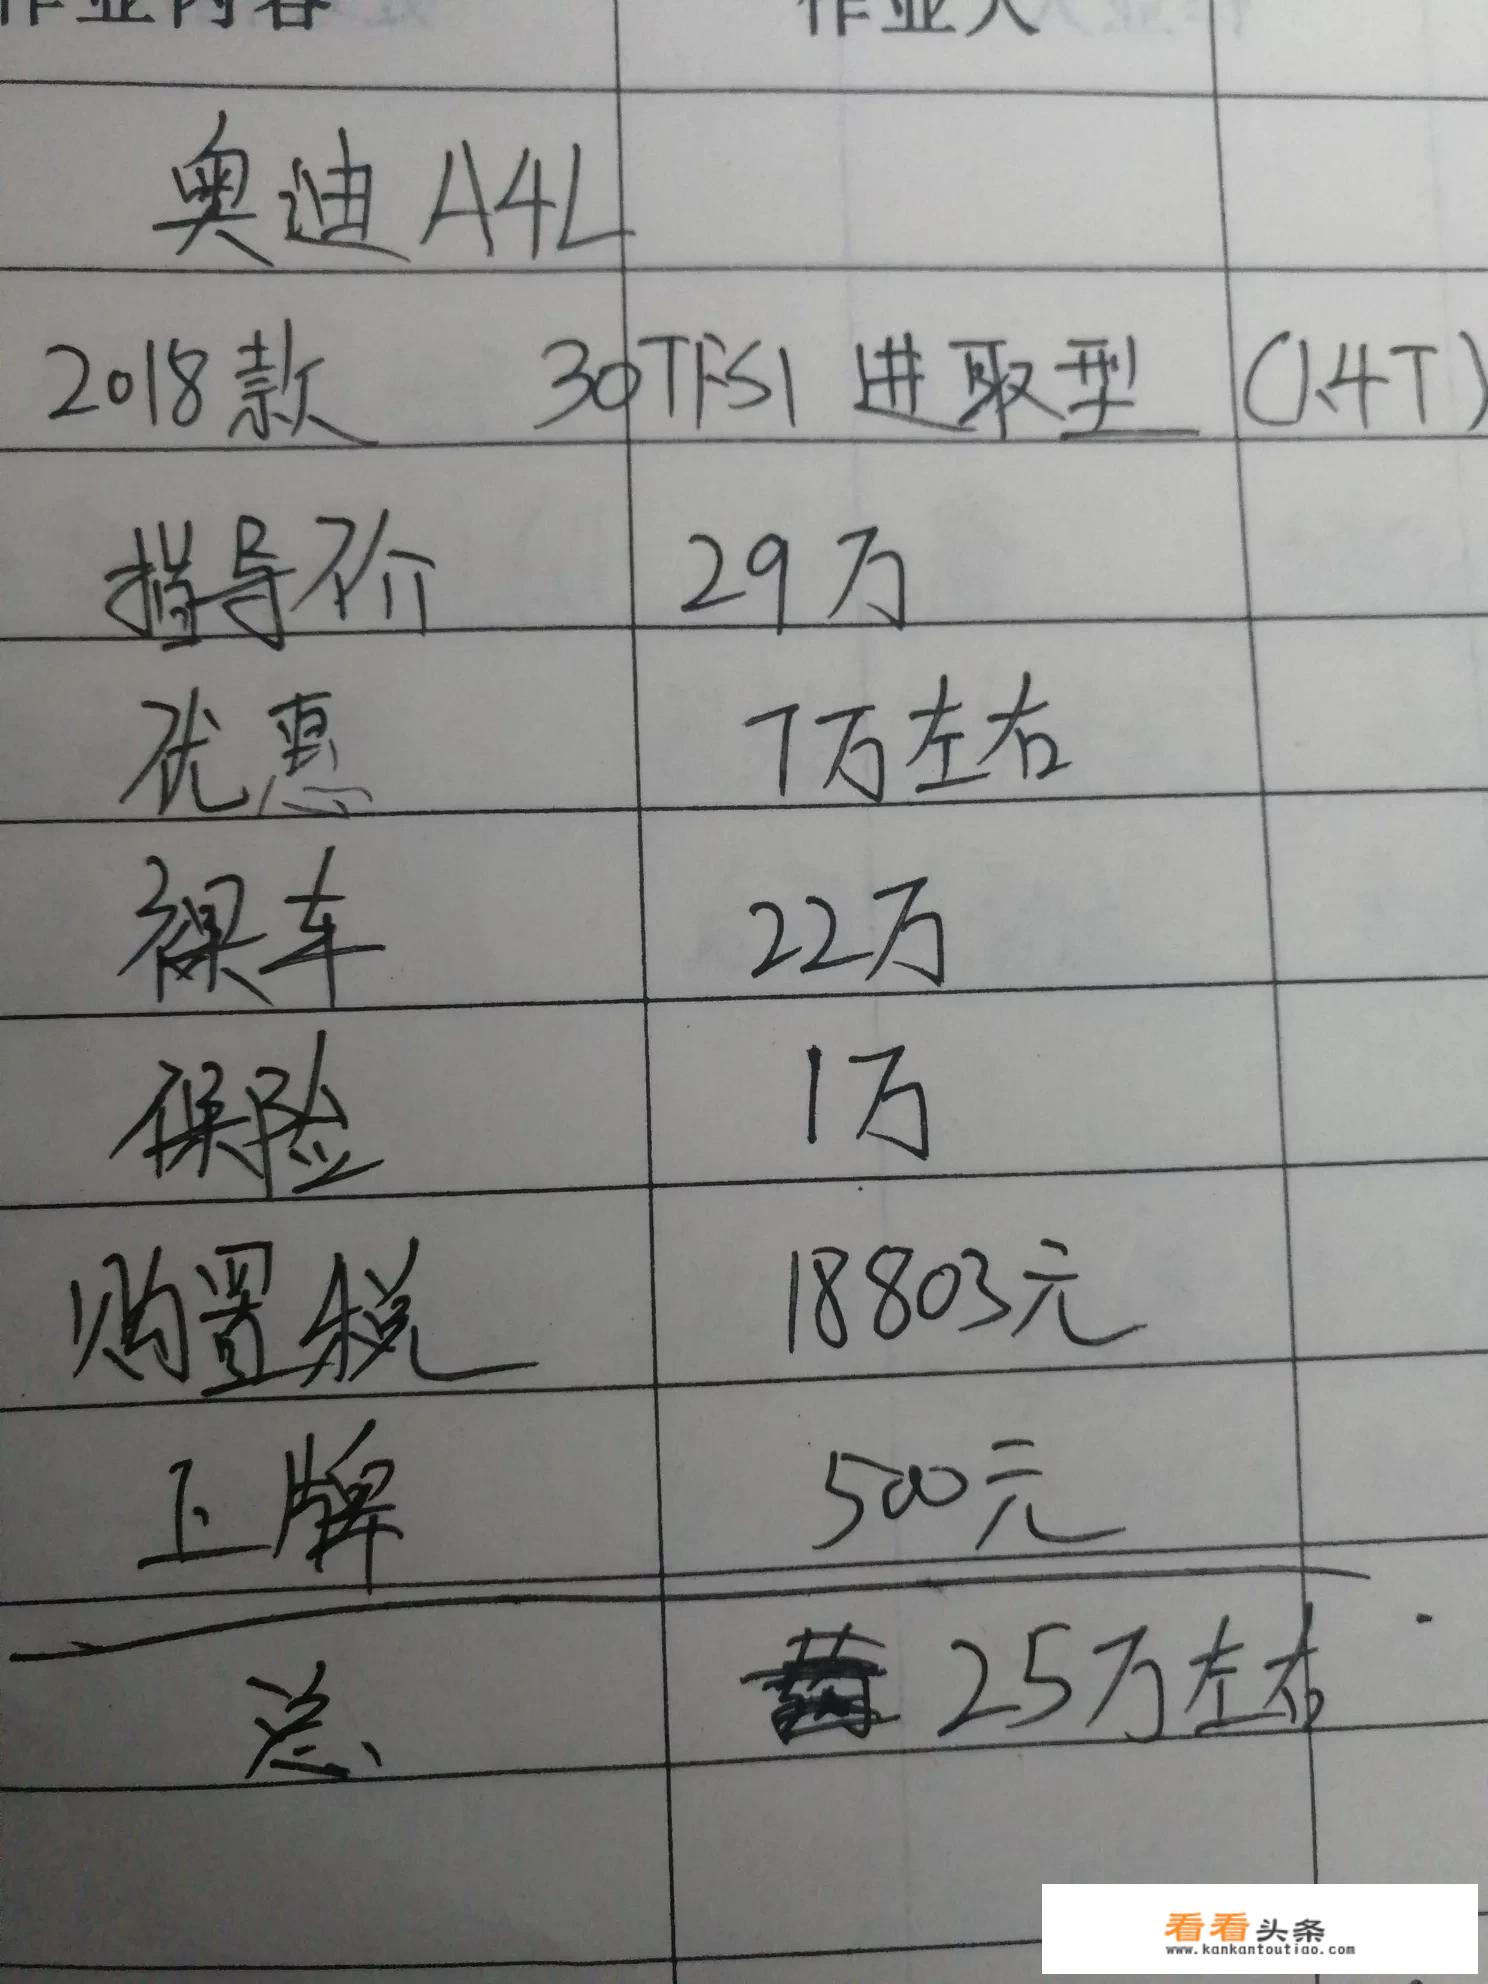 作业内容 作业人
奥迪 A4L
2018款 30TFSI 进取型 (1.4T)
指导价 29万
优惠 7万左右
裸车 22万
保险 1万
购置税 18803元
上牌 500元
总 25万左右
看看头条
www.kankantoutiao.com